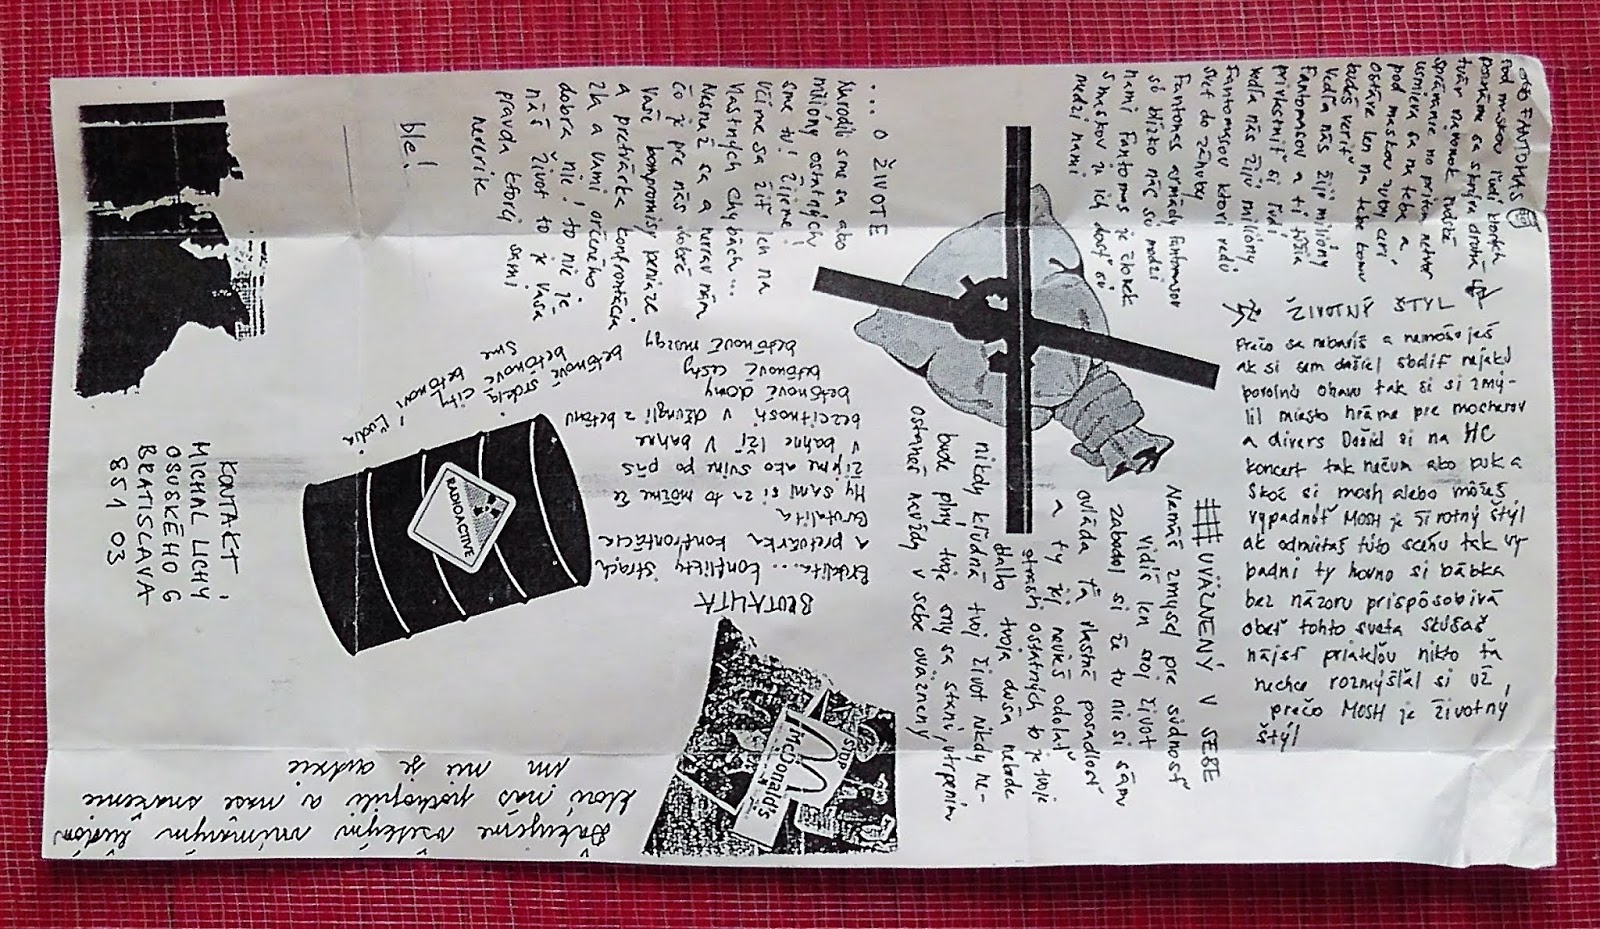 FANTOMAS
pod maskou ľudí ktorých
poznáme sa skrýva druhá
tvár navonok ľudské
správanie no pritom netvor
usmieva sa na teba a
pod maskou zuby cerí
ostáre len na tebe komu
budeš veriť
Vedľa nás žijú milióny
Fantomasov a tí túžia
privlastniť si ľudí
vedľa nás žijú milióny
Fantomasov ktorí vedú
svet do záhuby
Fantomas armády Fantomasov
sú blízko nás sú medzi
nami Fantomas je človek
s maskou je ich dosť sú
medzi nami
ŽIVOTNÝ ŠTYL
Prečo sa nebavíš a nemošoješ
ak si sem došiel sbaliť nejakú
povolnú obavu tak si si zmý-
lil miesto hráme pre mocherov
a divers Došiel si na HC
koncert tak nečum ako puk a
Skoč si mosh alebo môžeš
vypadnúť MOSH je životný štýl
ak odmietaš túto scénu tak vy
padni ty hovno si bábka
bez názoru prispôsobivá
obeť tohto sveta skúšaš
nájsť priateľov nikto ťa
nechce rozmýšľal si už
prečo MOSH je životný
štýl
...O ŽIVOTE
Narodili sme sa ako
milióny ostatných
sme tu! Žijeme!
Učíme sa žiť len na
vlastných chybách...
Nesnaž sa a nerav nám
čo je pre nás dobré
Vaše kompromisy peniaze
a pretvárka konfrontácia
zla a vami určeného
dobra nie! to nie je
náš život to je vaša
pravda ktorej sami
neveríte
ble!
UVÄZNENÝ V SEBE
Nemáš zmysel pre vidnosť
vidíš len svoj život
zabudol si že tu nie si sám
ovláda ťa vlastná posadlosť
a ty jej nevieš odolať
strasti ostatných to je tvoje
dielo tvoja duša nebude
nikdy kľudná tvoj život nikdy ne-
bude plný tvoje sny sa stanú utrpením
ostaneš navždy v sebe uväznený
BRUTALITA
Brutalita... konflikty strach
a pretvárka konfrontácia
Brutalita
My sami si za to môžme že
žijeme ako svine po pás
v bahne leží v bahne
bezcitnosti v džungli z betónu
betónové domy
betónové cesty
betónové mozgy
betónové srdcia
betónové city
sme betónoví ľudia
RADIOACTIVE
STOP
McDonald's
KONTAKT:
MICHAL LICHY
OSUSKÉHO 6
BRATISLAVA
851 03
Ďakujeme všetkým vnímavým ľuďom
ktorí nás pochopili a naše snaženie
im nie je cudzie